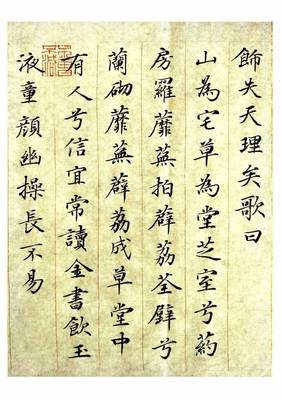 飾失天理矣歌曰
山為宅草為堂芝室兮葯
房羅蘼蕪拍薜荔荃壁兮
蘭砌蘼蕪薜荔成草堂中
有人兮信宜常讀金書飲玉
液童顏幽操長不易